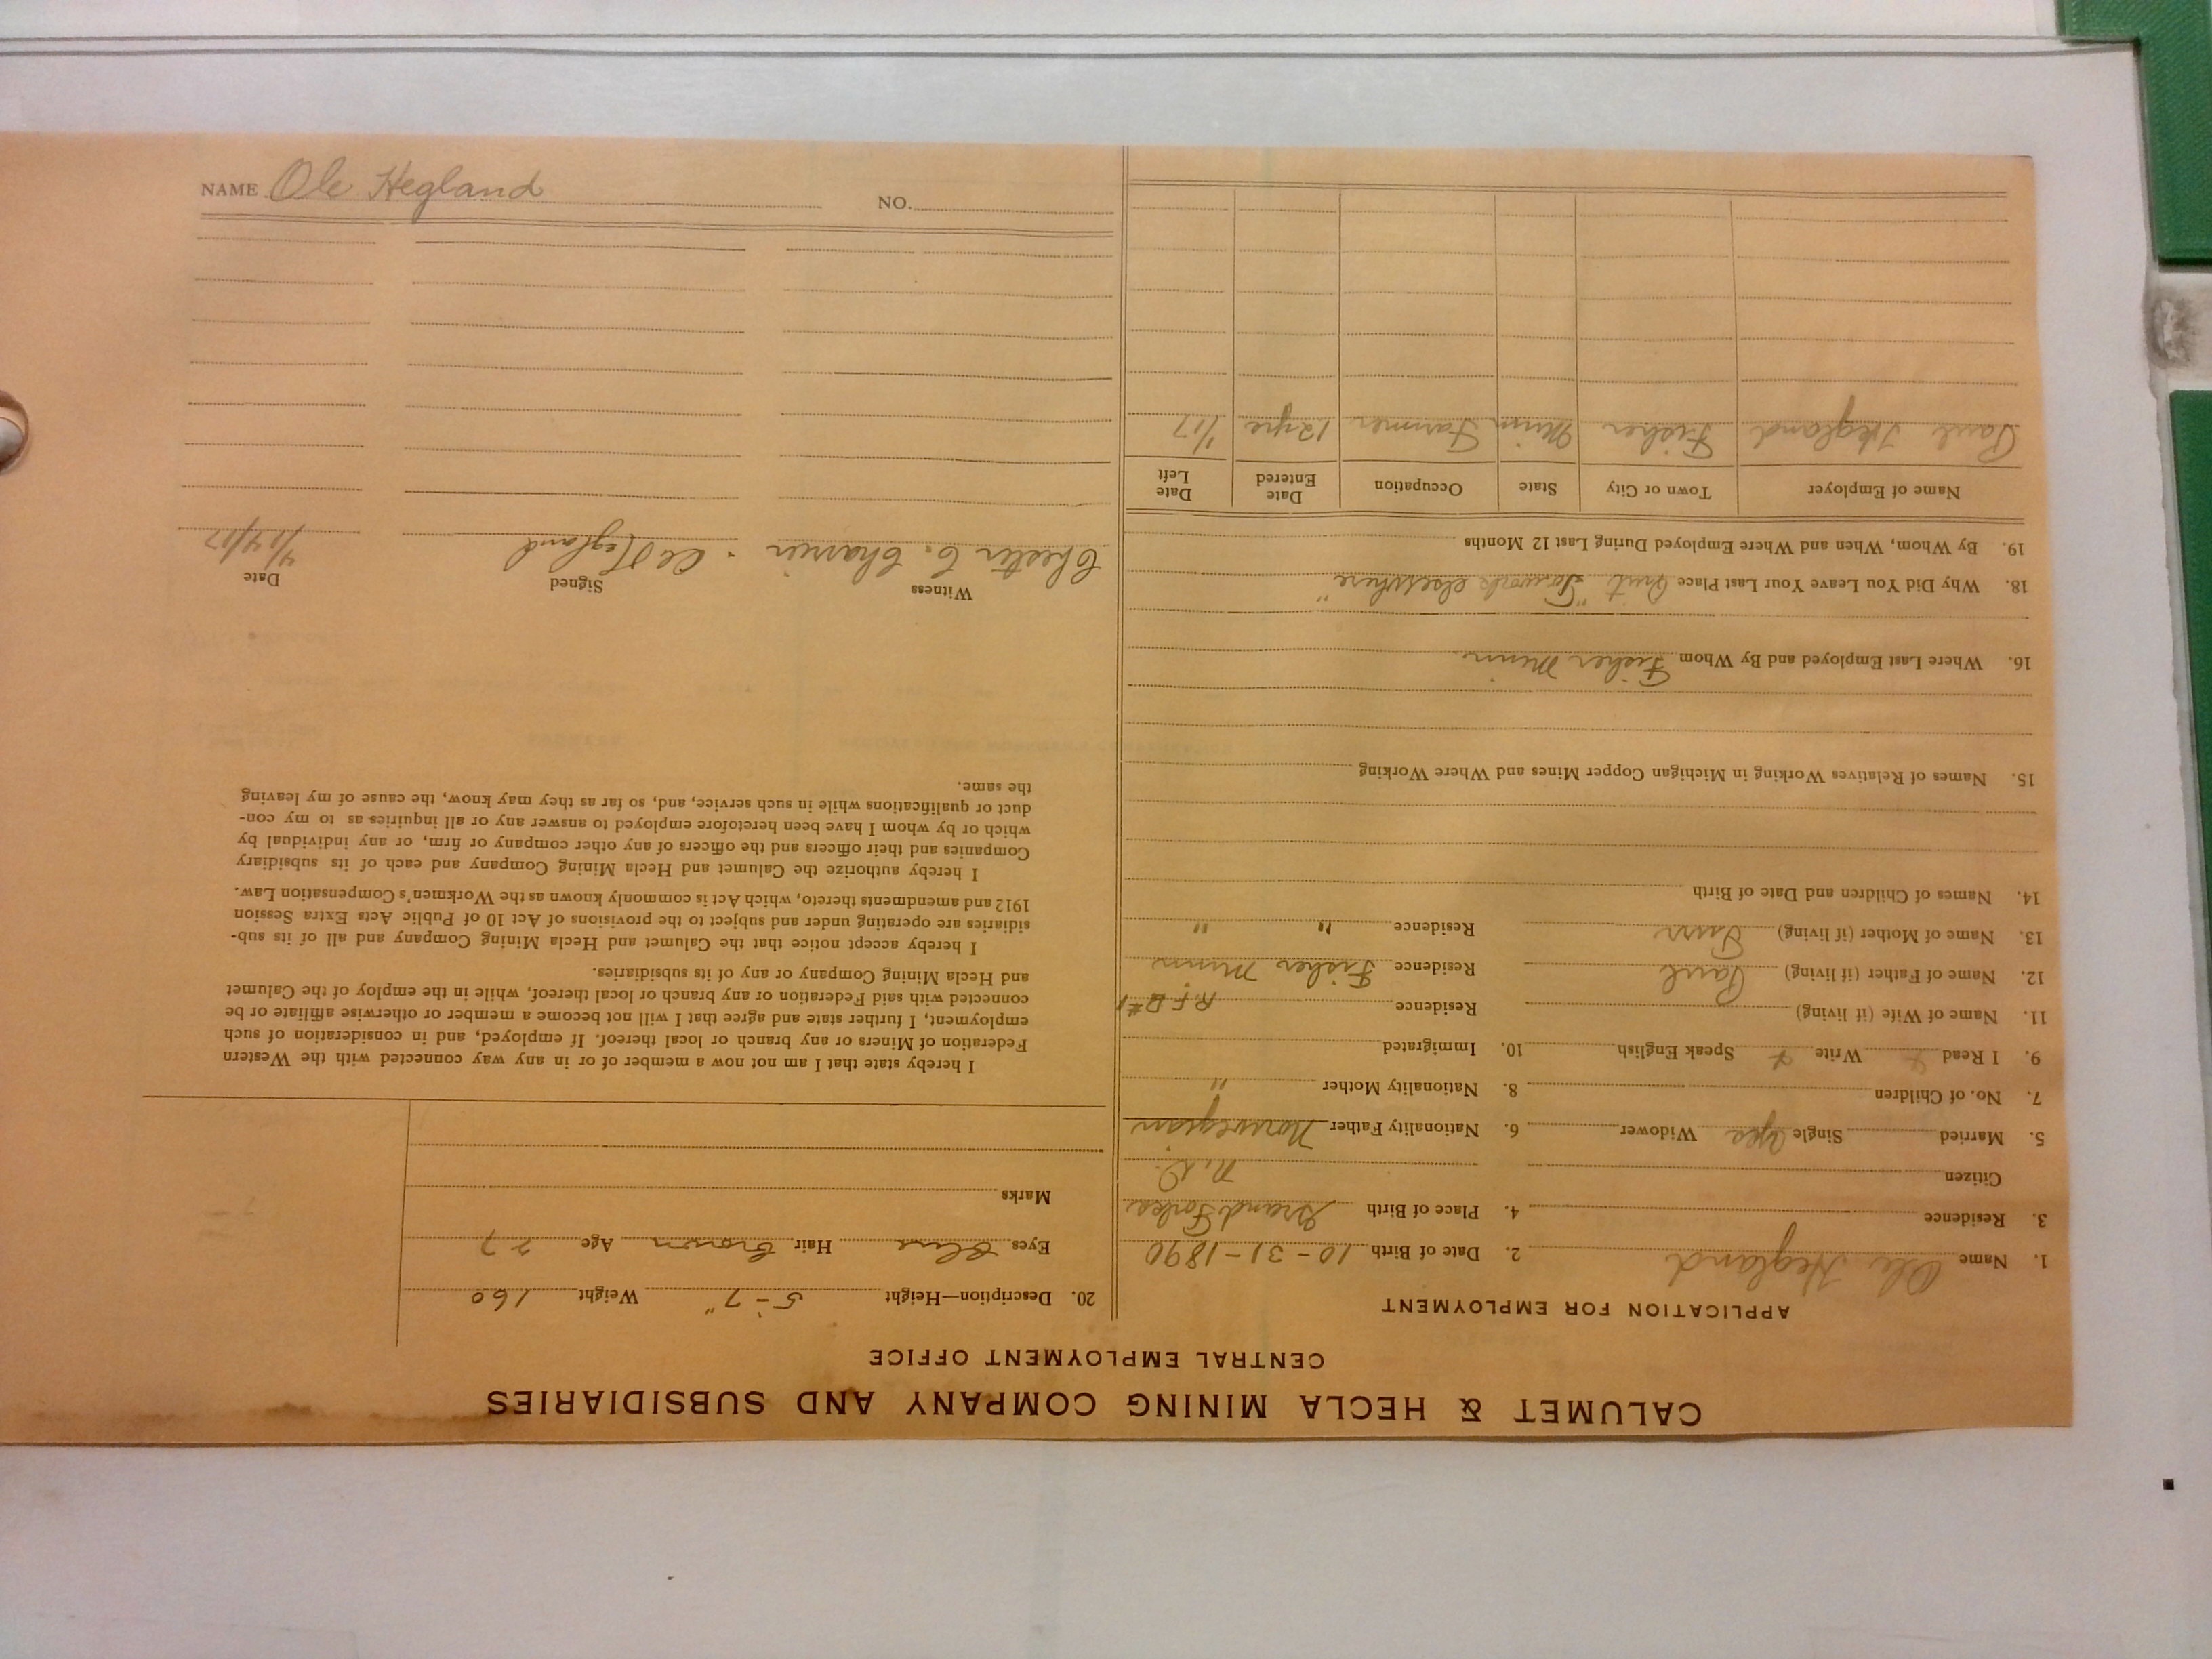 CALUMET & HECLA MINING COMPANY AND SUBSIDIARIES
CENTRAL EMPLOYMENT OFFICE
APPLICATION FOR EMPLOYMENT
1. Name Ole Hegland 2. Date of Birth 10-31-1890
3. Residence 4. Place of Birth Grand Forks
Citizen N. D.
5. Married Single yes Widower 6. Nationality Father Norwegian
7. No. of Children 8. Nationality Mother "
9. I Read Write Speak English 10. Immigrated
11. Name of Wife (if living) Residence R.F.D #1
12. Name of Father (if living) Paul Residence Fisher Minn
13. Name of Mother (if living) Residence " "
14. Names of Children and Date of Birth
15. Names of Relatives Working in Michigan Copper Mines and Where Working
16. Where Last Employed and By Whom Fisher Minn.
18. Why Did You Leave Your Last Place Quit "To work elsewhere"
19. By Whom, When and Where Employed During Last 12 Months
Name of Employer Town or City State Occupation Date Entered Date Left
Paul Hegland Fisher Minn Farmer 12 yrs 1/17
20. Description—Height 5-7" Weight 160
Eyes Blue Hair Brown Age 27
Marks
I hereby state that I am not now a member of or in any way connected with the Western
Federation of Miners or any branch or local thereof. If employed, and in consideration of such
employment, I further state and agree that I will not become a member or otherwise affiliate or be
connected with said Federation or any branch or local thereof, while in the employ of the Calumet
and Hecla Mining Company or any of its subsidiaries.
I hereby accept notice that the Calumet and Hecla Mining Company and all of its sub-
sidiaries are operating under and subject to the provisions of Act 10 of Public Acts Extra Session
1912 and amendments thereto, which Act is commonly known as the Workmen's Compensation Law.
I hereby authorize the Calumet and Hecla Mining Company and each of its subsidiary
Companies and their officers and the officers of any other company or firm, or any individual by
which or by whom I have been heretofore employed to answer any or all inquiries as to my con-
duct or qualifications while in such service, and, so far as they may know, the cause of my leaving
the same.
Witness Signed Date
Chester C. Ole Hegland 4/14/17
NAME Ole Hegland NO.